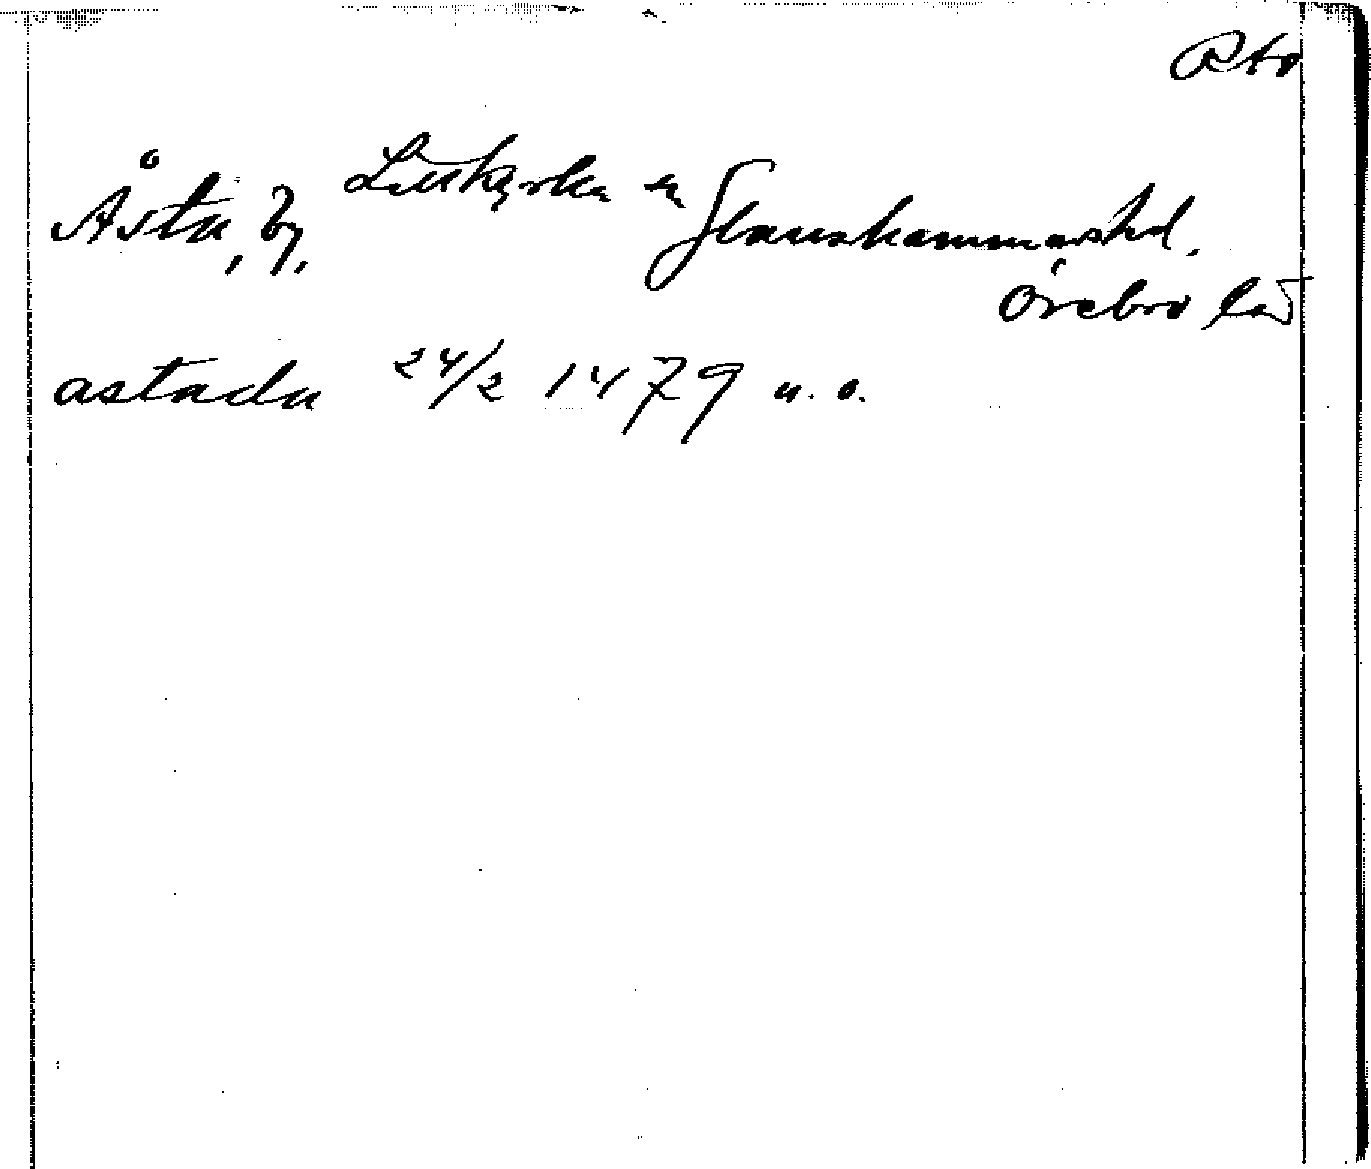 Rto
Åsta, by, Lillkyrka sn Glanshammarshd.
Örebro län
astada 24/2 1479 u. o.